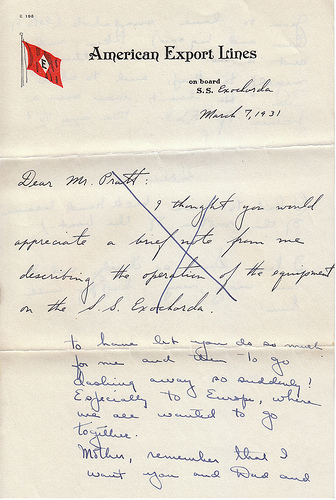 C 188
E
American Export Lines
on board
S.S. Exochorda
March 7, 1931
Dear Mr. Pratt:
I thought you would
appreciate a brief note from me
describing the operation of the equipment
on the S.S. Exochorda.
to have let you do so much
for me and then to go
dashing away so suddenly!
Especially to Europe, where
we all wanted to go
together.
Mother, remember that I
want you and Dad and